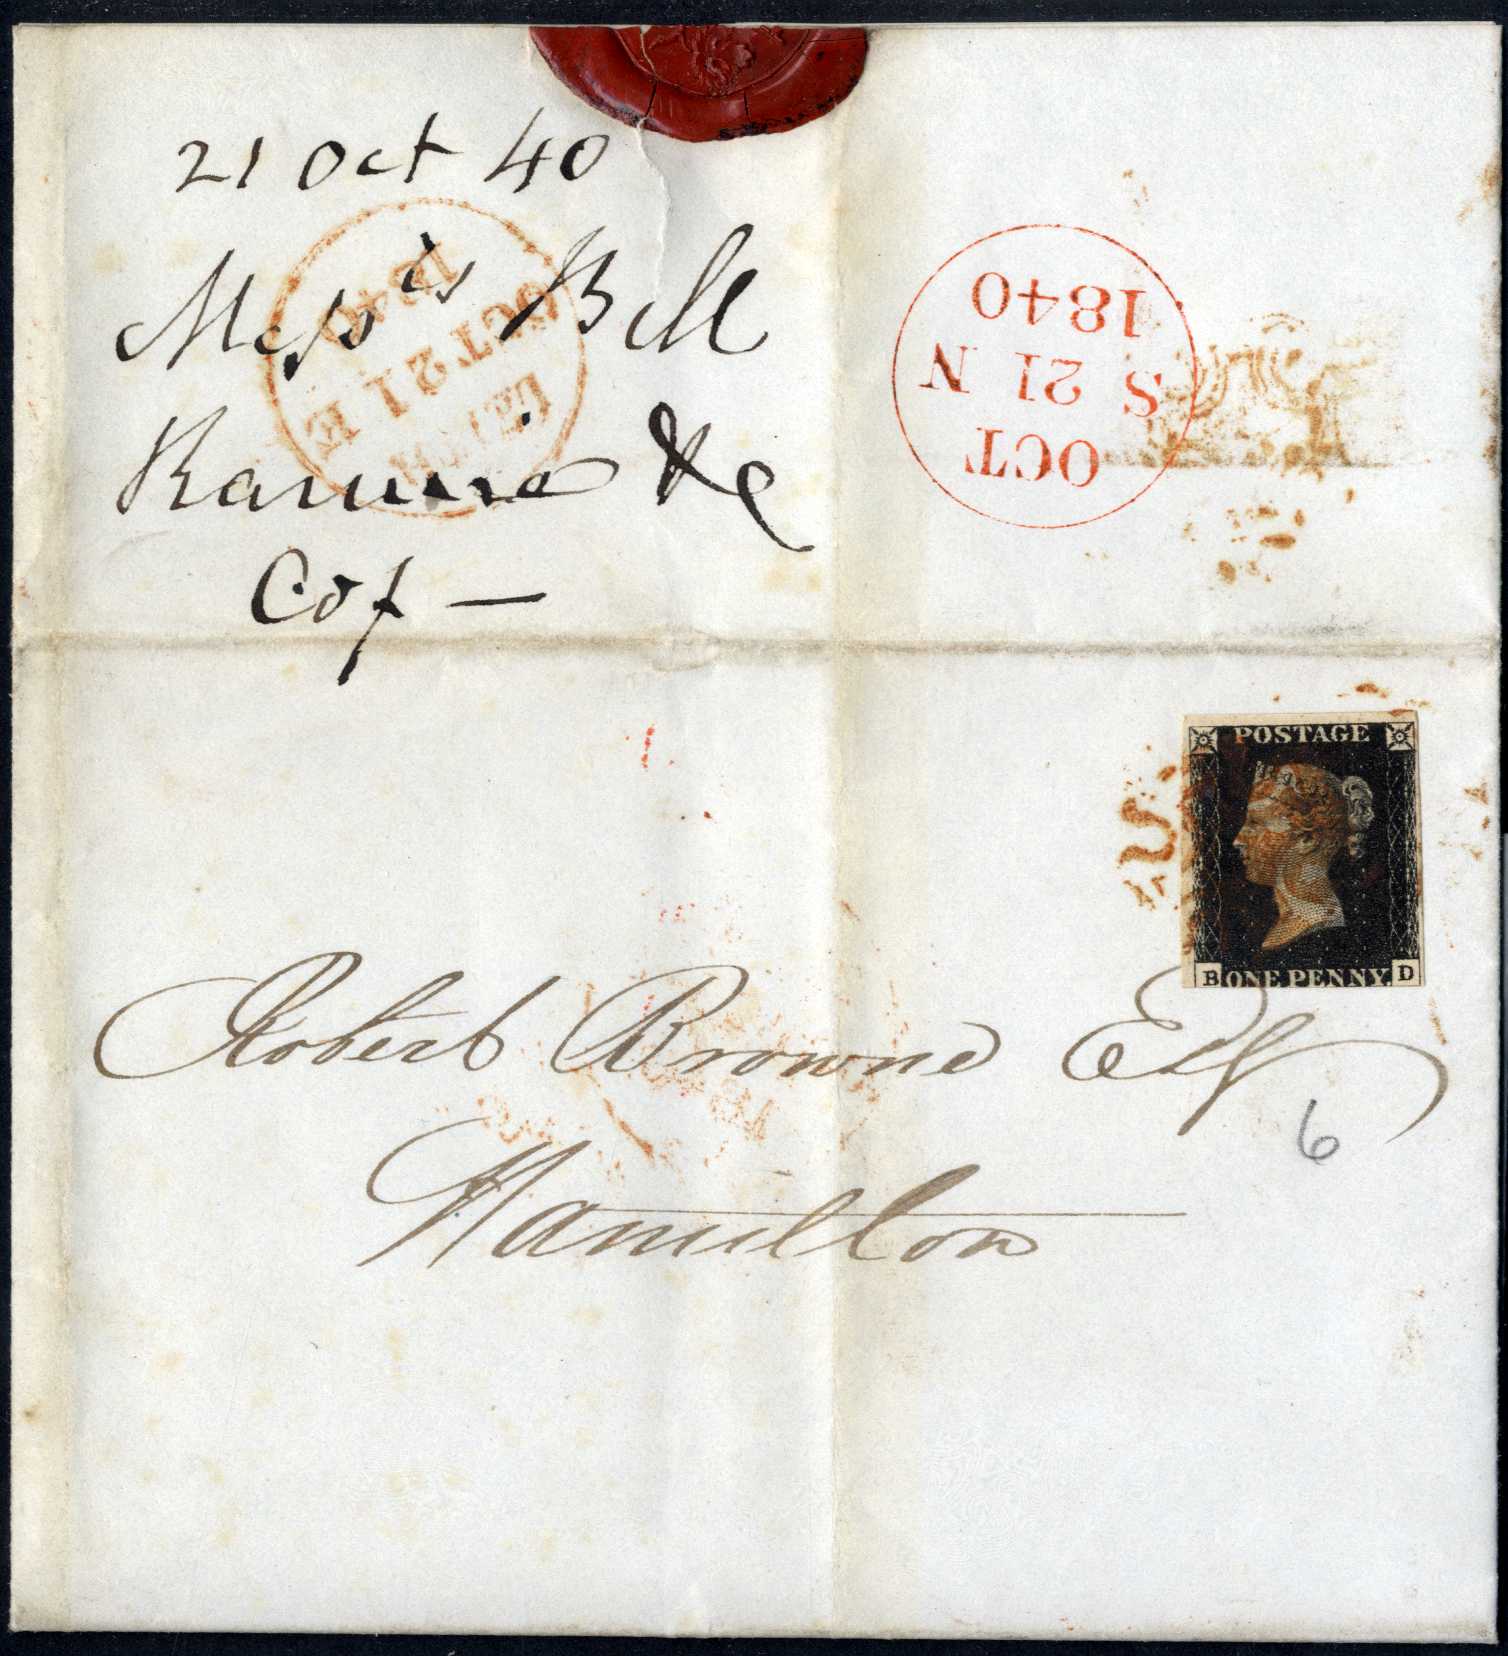 21 Oct 40
Messrs Bell
Rannie & Co
Cos —
OCT 21 E
1840
LEITH
OCT
S 21 N
1840
POSTAGE
B ONE PENNY. D
Robert Browne Esq
6
Hamilton